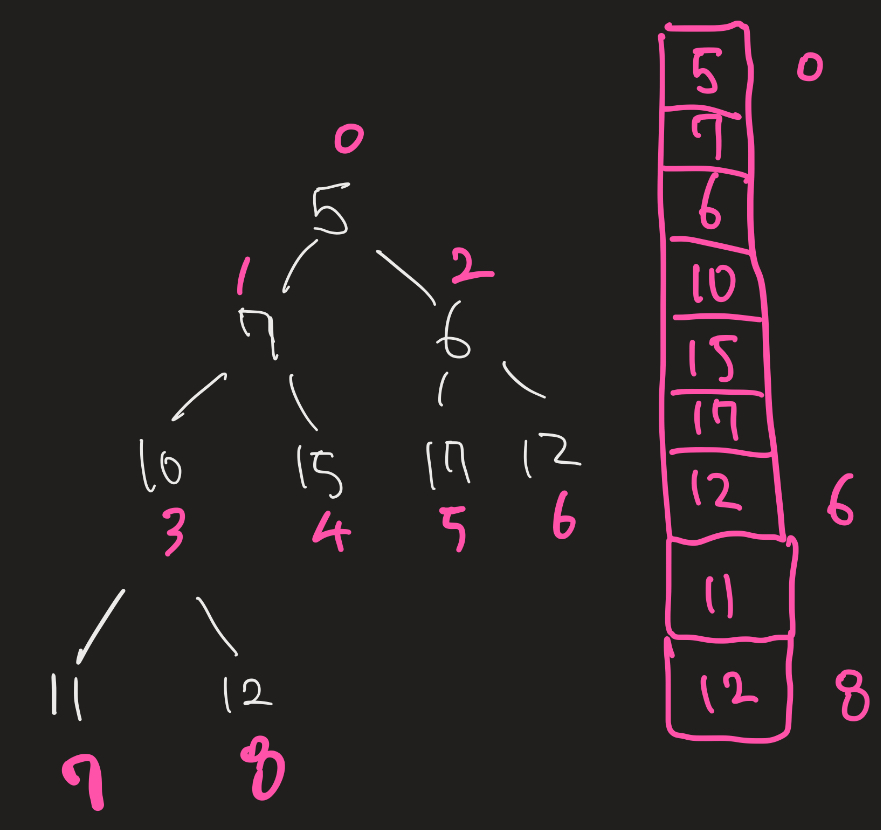 0
5
1 2
7 6
10 15 17 12
3 4 5 6
11 12
7 8
5 0
7
6
10
15
17
12 6
11
12 8